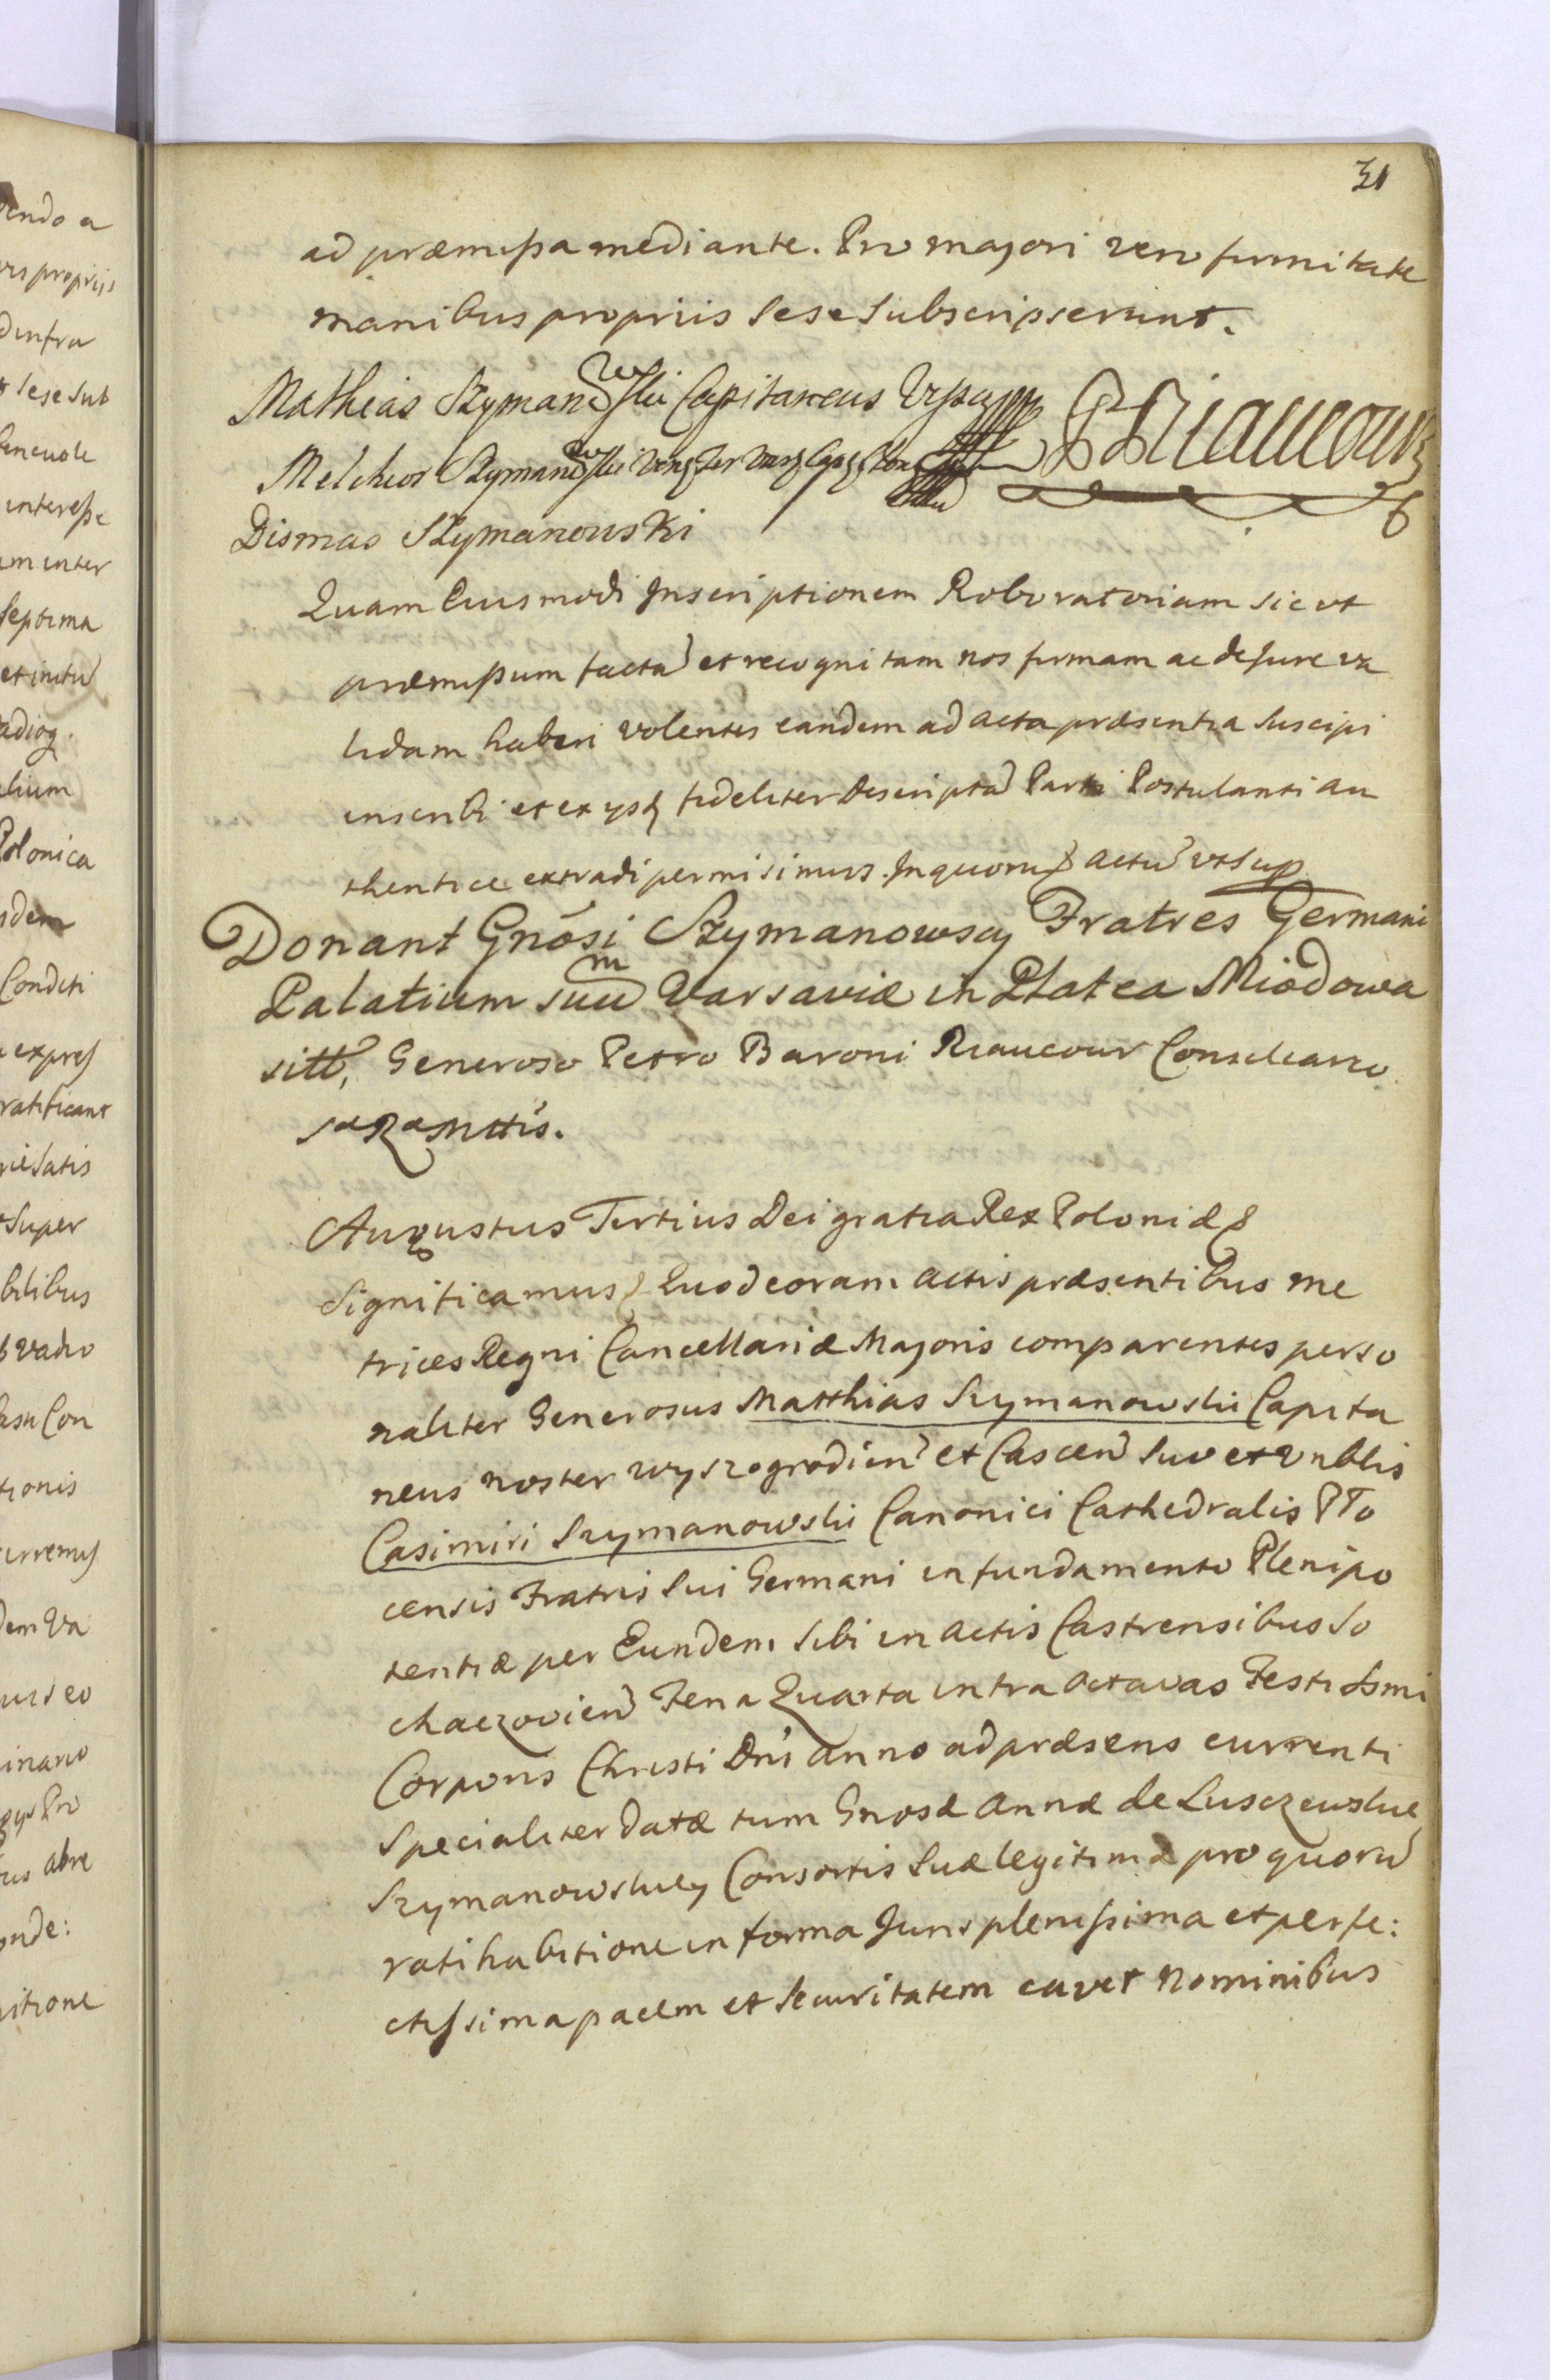 31
ad præmissa mediante. Pro majori vero firmitate
manibus propriis Sese Subscripserunt.
Mathias Szymanowski Capitaneus
Melchior Szymanowski
P Riaucour
Dismas Szymanowski
Quam Eiusmodi Inscriptionem Roboratoriam sic ut
præmissum factã et recognitam nos firmam ac de Jure va
lidam haberi volentes eandem ad acta præsentia Suscipi
inscribi et ex ysdẽ fideliter Descriptã Parti Postulanti au
thentice extradi permisimus. In quorum actũ ut Sup
Donant Gnõsi Szymanowscy Fratres Germani
Palatium suum Varsaviæ in Platea Miodowa
sitt, Generoso Petro Baroni Riaucour Consiliario
sæRæMttis.
Augustus Tertius Dei gratia Rex Poloniæ &
Significamus & Quod coram actis præsentibus me
trices Regni Cancellariæ Majoris comparentes perso
naliter Generosus Matthias Szymanowski Capita
neus noster Wyszogrodien et Cascen Suo et vnblis
Casimiri Szymanowski Canonici Cathedralis Plo
censis Fratris Sui Germani in fundamento Plenipo
tentiæ per Eundem Sibi in actis Castrensibus So
chaczovien Feria Quarta intra octavas Festi Ssmi
Corporis Christi Dni anno ad præsens currenti
Specialiter datæ tum Gnosæ Annæ de Lusczewskie
Szymanowskiey Consortis Suæ legitimæ pro quorũ
ratihabitione in forma Juris plenissima et perfe:
ctissima pacem et Securitatem cavet Nominibus